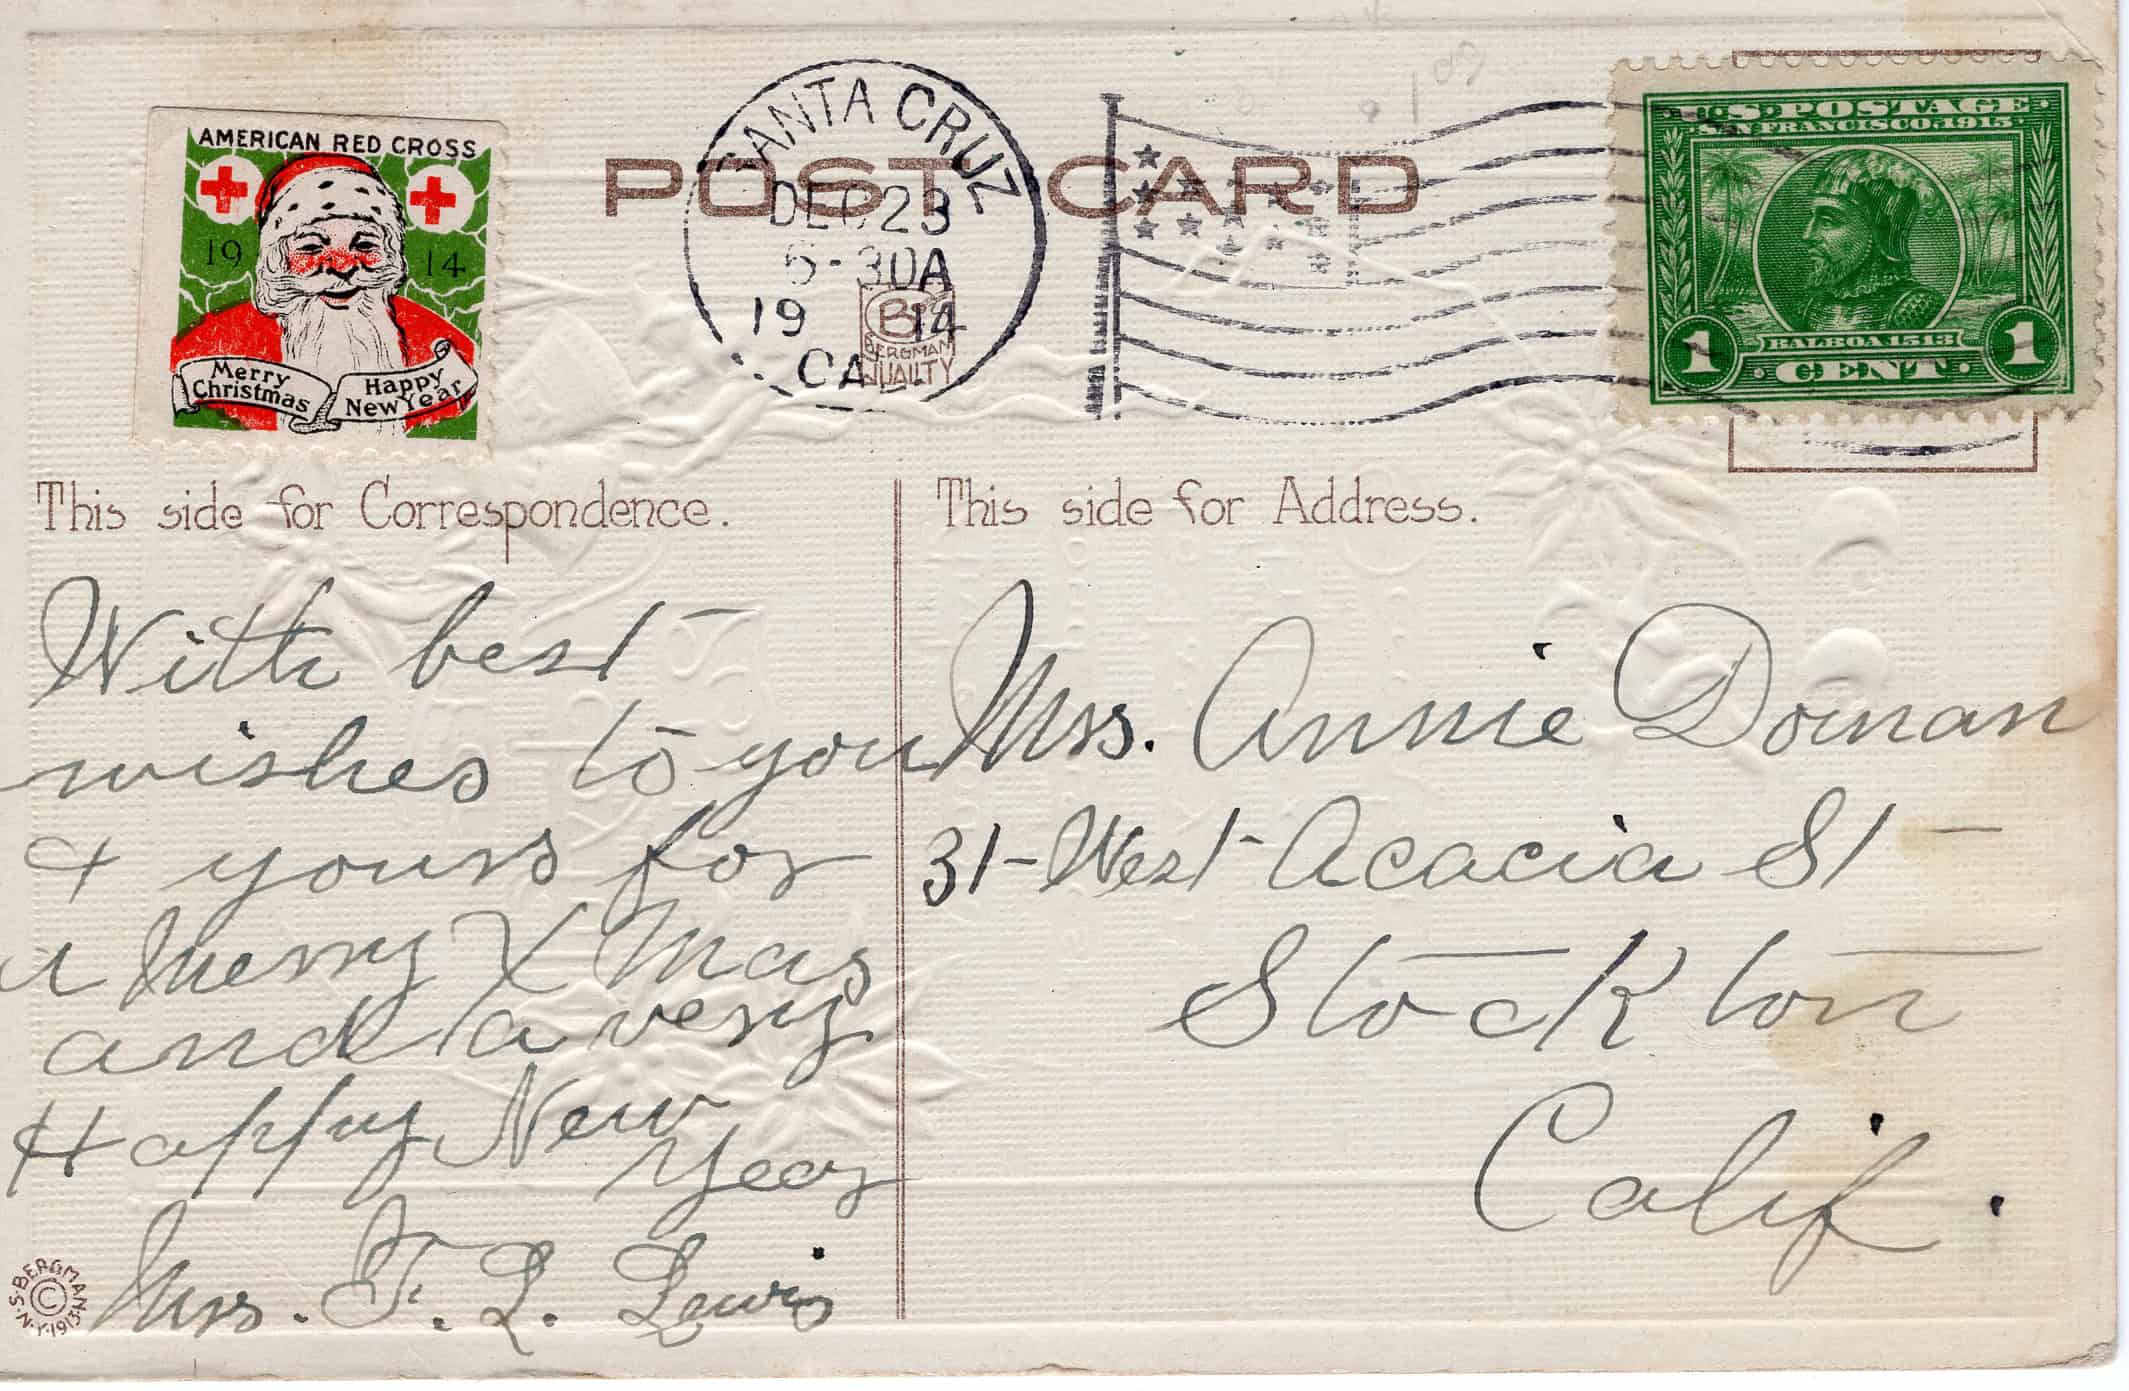 AMERICAN RED CROSS
19 14
Merry Christmas
Happy New Year
SANTA CRUZ
DEC 23
5-30A
19 14
CAL
POST CARD
BERGMAN
QUAILTY
U·S·POSTAGE
SAN FRANCISCO, 1915
BALBOA 1513
1 CENT 1
This side for Correspondence.
With best
wishes to you
& yours for
a Merry X Mas
and a very
Happy New
Year
Mrs. F. L. Lewis
S. BERGMAN N.Y. 1913
©
This side for Address.
Mrs. Annie Doman
31-West Acacia St
Stockton
Calif.